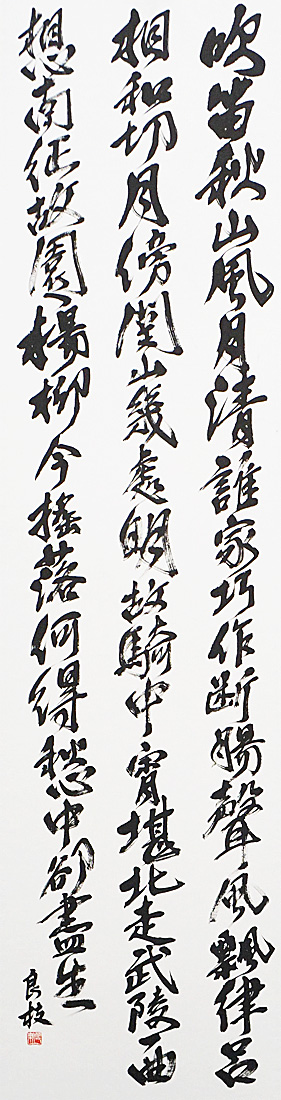 吹笛秋山風月清誰家巧作断腸聲風飄律呂
相和切月傍関山幾處明胡騎中宵堪北走武陵一曲
想南征故園楊柳今揺落何得愁中卻盡生
良枝